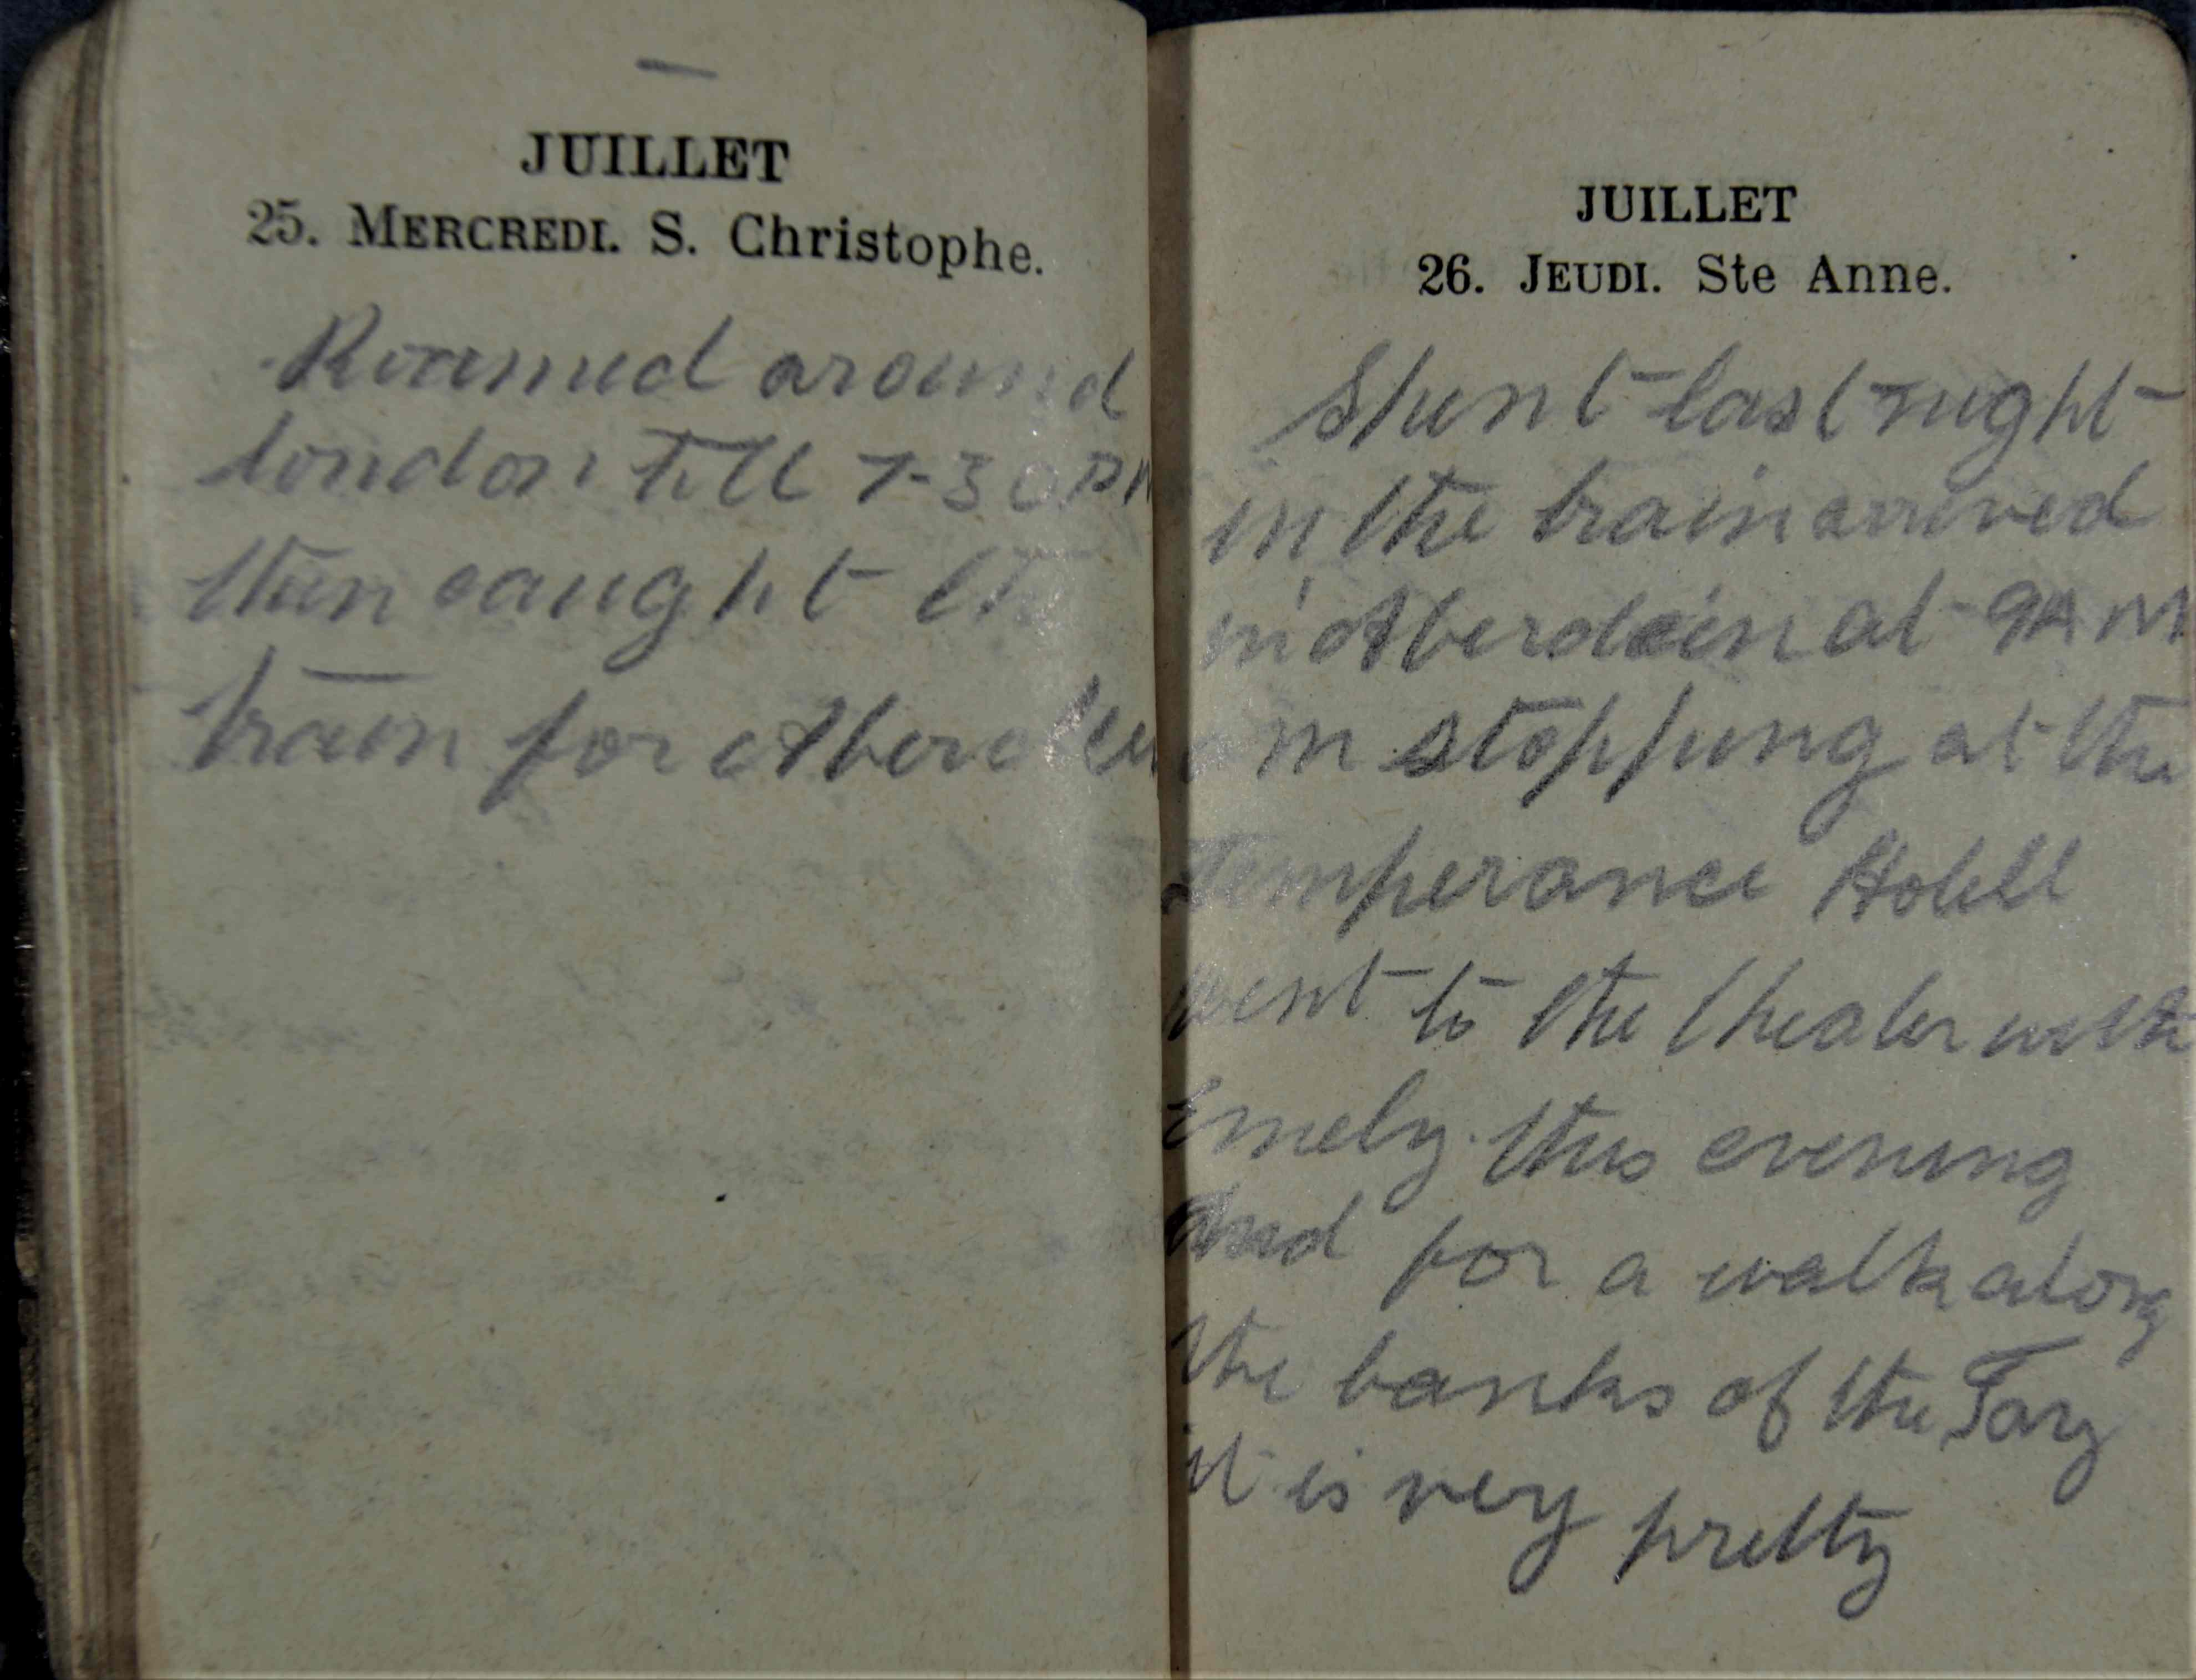 JUILLET
25. MERCREDI. S. Christophe.
Roamed around
London till 7-30 PM
then caught the
train for Aberdeen
JUILLET
26. JEUDI. Ste Anne.
Spent last night
in the train arrived
in Aberdeen at 9AM
am stopping at the
Temperance Hotell
went to the theater with
Emely this evening
and for a walk along
the banks of the Tay
it is very pretty